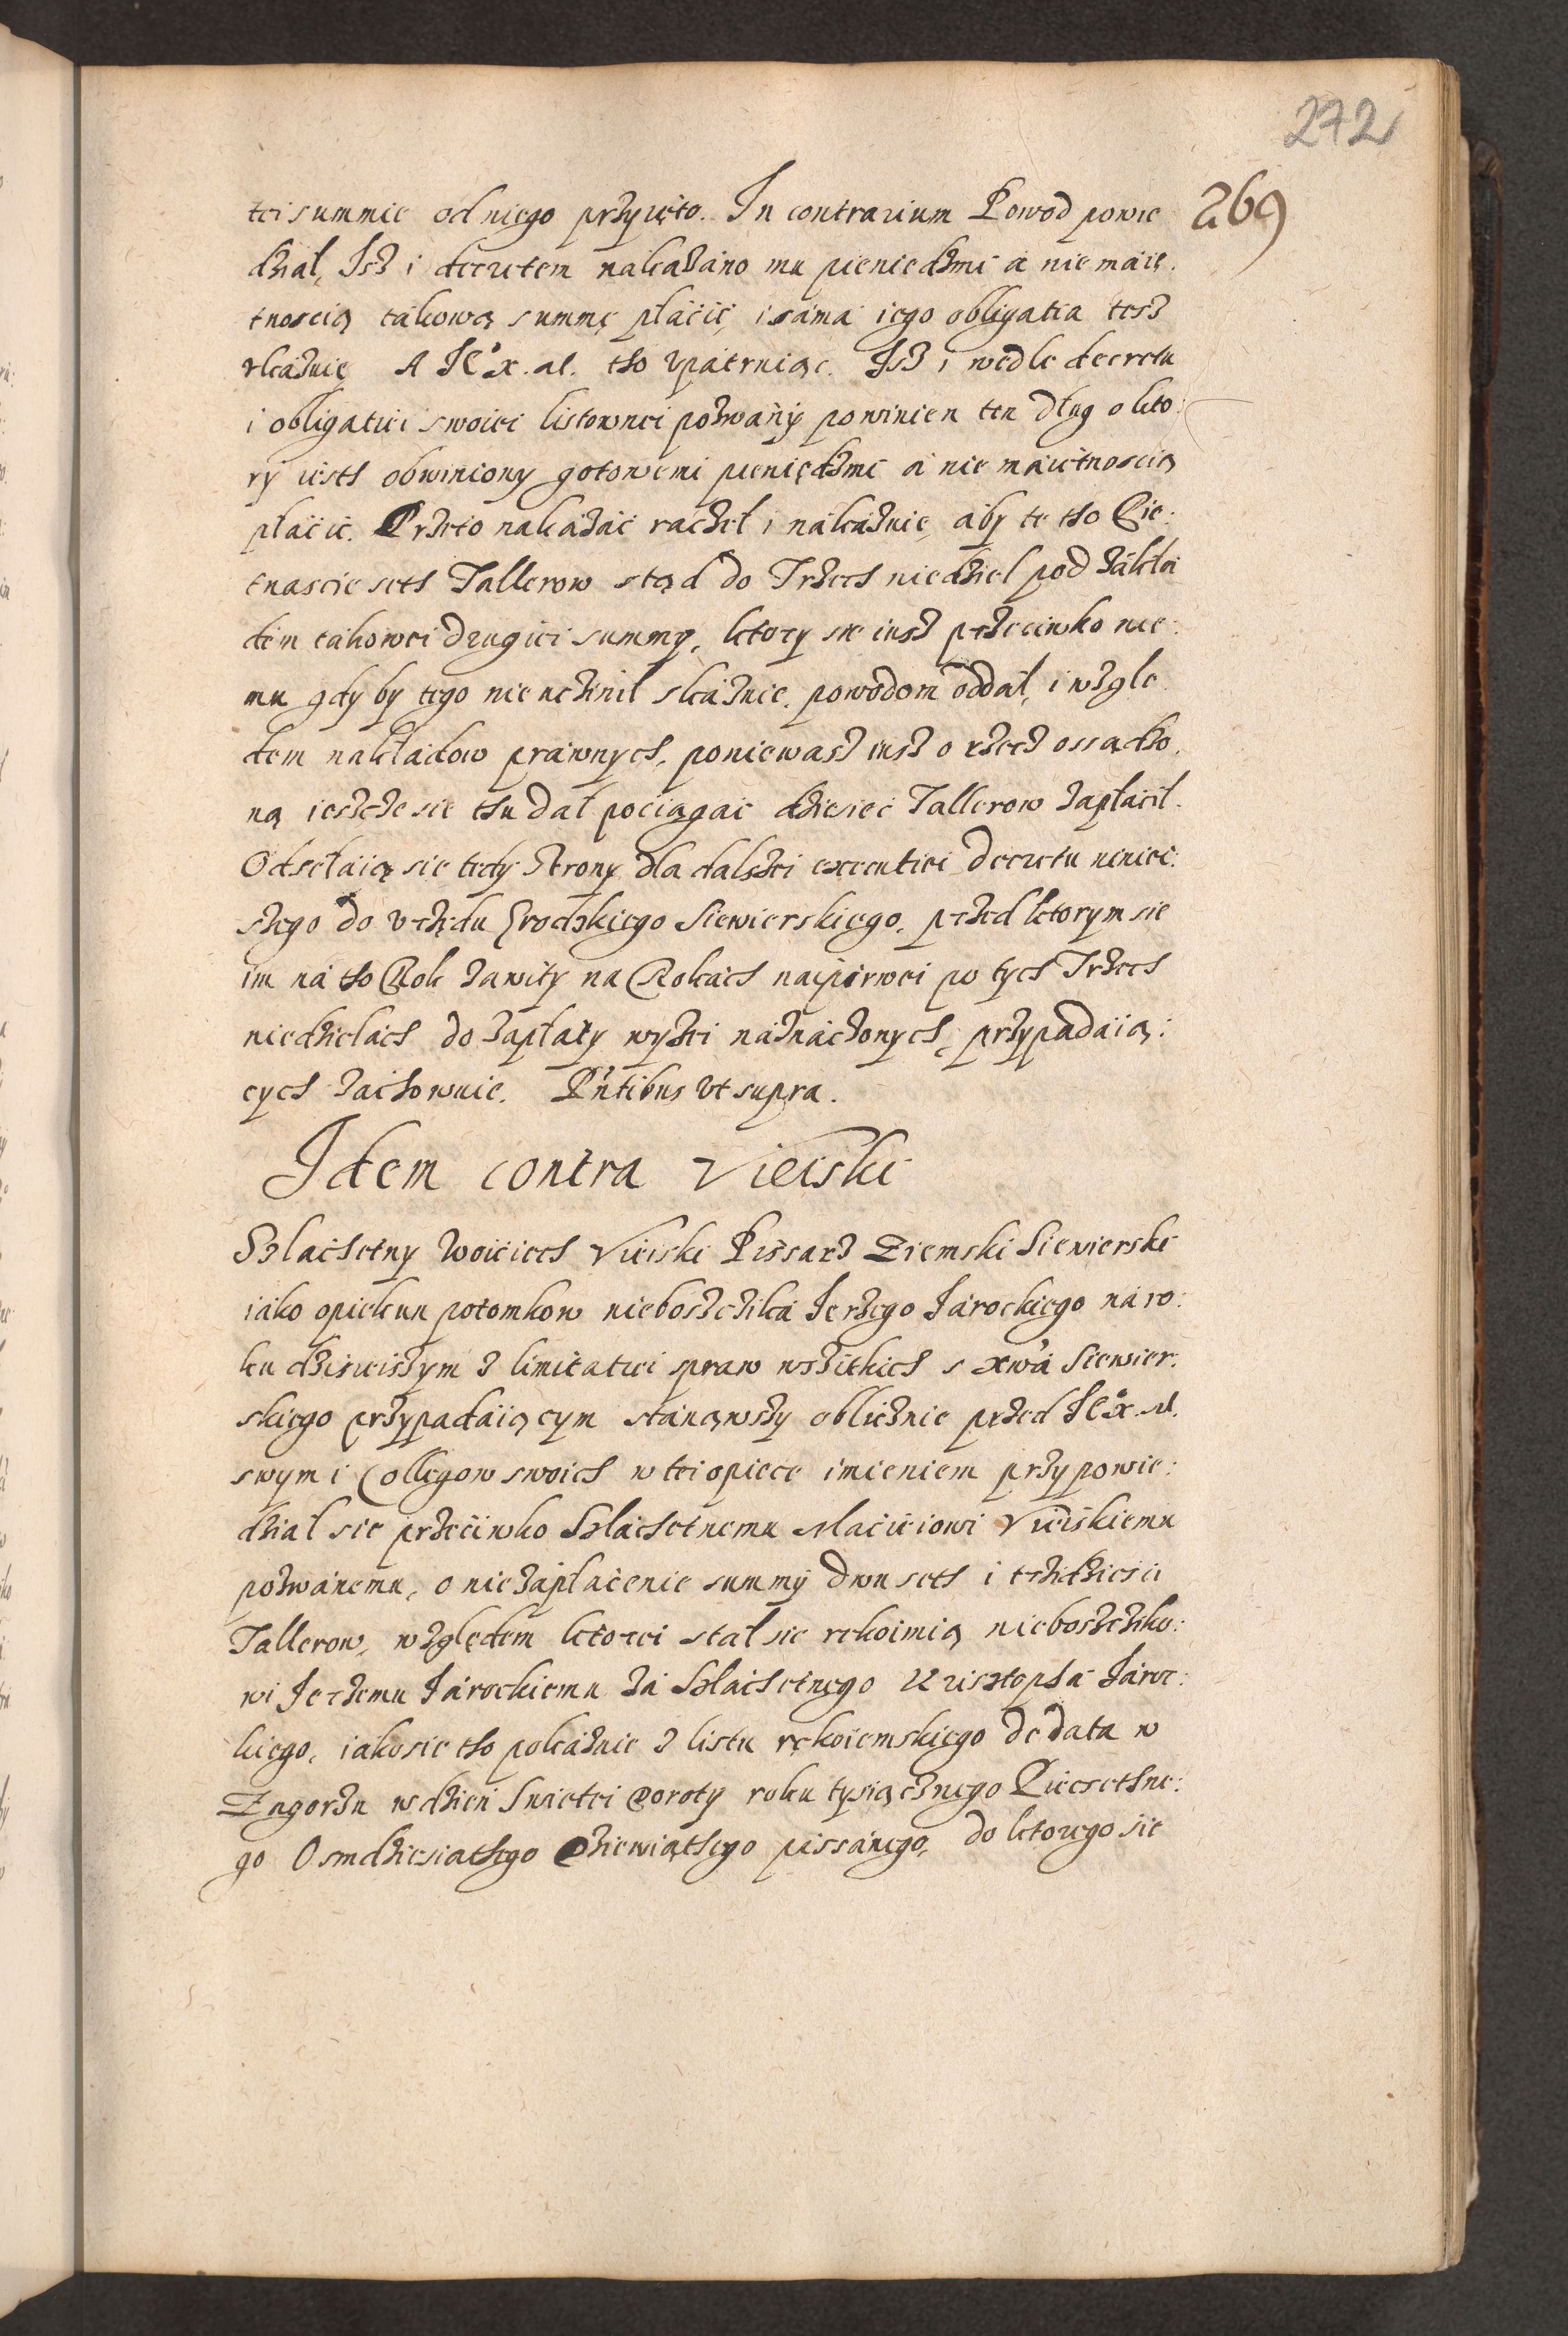 272
269
tei summie od niego przyięto. In contrarium Powod powie
dział, Isz i decretem nakazano mu pieniedzmi a nie maię.
tnoscią takową summę płacić, i sama iego obligatia tesz
vkazuię A JEo x. M. tho vpatruiąc. Isz i wedle decretu
i obligatiei swoiei listownei pozwany powinien ten dług o kto:
ry iesth obwiniony gotowemi pieniędzmi a nie maiętnoscią
płacic. Przeto nakazać raczeł i nakazuie, aby te tho Pie:
tnascie seth Tallerow stąd do Trzech niedziel pod zakła
dem takowei drugiei summy, ktory sie iusz przeciwko nie:
mu gdy by tego nie uczinił skazuie. powodom oddał, i wzgle
dem nakładow prawnych, poniewasz iusz o rzecz ossądzo.
ną ieszcze sie thu dał pociągać dziesiec Tallerow zapłacił.
Odsełaią sie tedy Strony dla dalszei executiei decretu niniei:
szego do vrzędu Grodzkiego Siewierskiego, przed ktorym sie
im na tho Rok zawity na Rokach napirwei po tych Trzech
niedzielach do zapłaty wyżei naznaczonych, przypadaią:
cych zachowuie. Pntibus vt supra.
Idem contra Vieiski
Szlachetny Woiciech Vieiski Pissarz Ziemski Siewierski
iako opiekun potomkow nieboszczika Jerzego Jarockiego na ro:
ku dzisieiszym z limitatiei spraw wszitkich s xwa Siewier:
skiego przypadaiącym stanąwszy oblicznie przed JEo x. M.
swym i Collegow swoich w tei opiece imieniem przypowie:
dział sie przeciwko Szlachetnemu Macieiowi Vieiskiemu
pozwanemu, o niezapłacenie summy dwu seth i trzidziesci
Tallerow, względem ktorei stał sie rekoimią nieboszcziko:
wi Jerzemu Jarockiemu za Szlachetnego Krisztopha Jaroc:
kiego, iako sie tho pokazuie z listu rękoiemskiego de data w
Zagorzu w dzien Swietei Doroty roku tysiącznego Piecsethne:
go Osmdziesiathego Dziewiąthego pissanego, do ktorego sie